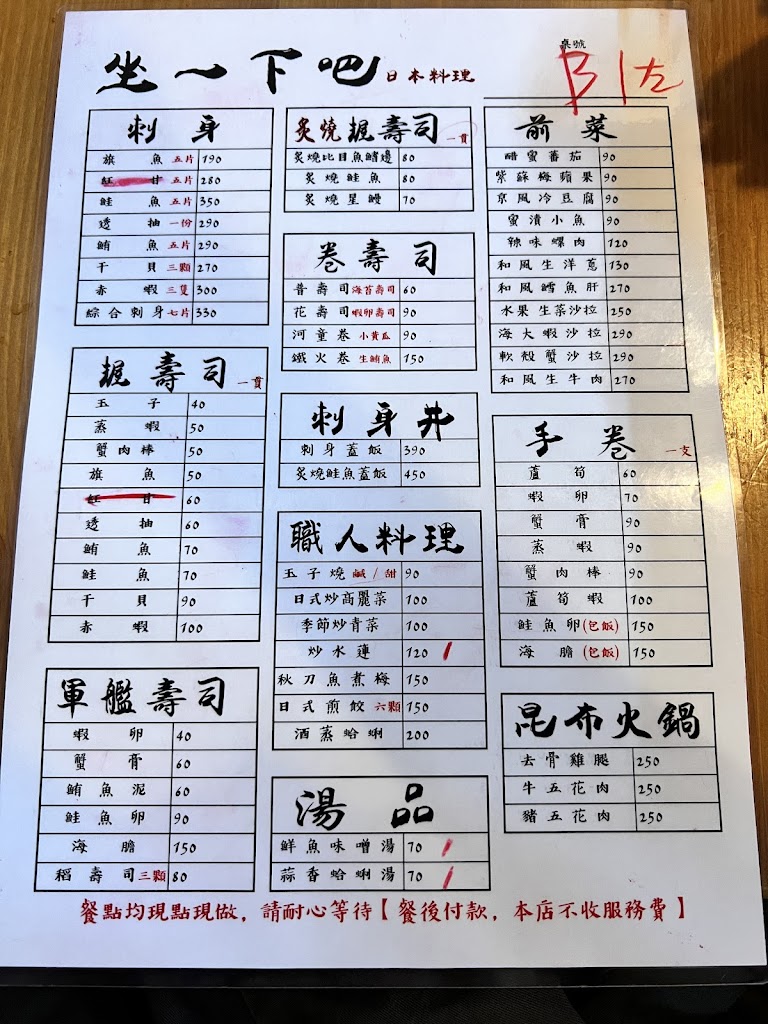 坐一下吧日本料理
桌號
B1左
刺身
旗魚 五片 190
紅甘 五片 280
鮭魚 五片 350
透抽 一份 290
鮪魚 五片 290
干貝 三顆 270
赤蝦 三隻 300
綜合刺身 七片 330
握壽司 一貫
玉子 40
蒸蝦 50
蟹肉棒 50
旗魚 50
紅甘 60
透抽 60
鮪魚 70
鮭魚 70
干貝 90
赤蝦 100
軍艦壽司
蝦卵 40
蟹膏 60
鮪魚泥 60
鮭魚卵 90
海膽 150
稻壽司 三顆 80
炙燒握壽司 一貫
炙燒比目魚鰭邊 80
炙燒鮭魚 80
炙燒星鰻 70
卷壽司
普壽司 海苔壽司 60
花壽司 蝦卵壽司 90
河童卷 小黃瓜 90
鐵火卷 生鮪魚 150
刺身丼
刺身蓋飯 390
炙燒鮭魚蓋飯 450
職人料理
玉子燒 鹹/甜 90
日式炒高麗菜 100
季節炒青菜 100
炒水蓮 120
秋刀魚煮梅 150
日式煎餃 六顆 150
酒蒸蛤蜊 200
湯品
鮮魚味噌湯 70
蒜香蛤蜊湯 70
前菜
醋蜜蕃茄 90
紫蘇梅蘋果 90
京風冷豆腐 90
蜜漬小魚 90
辣味螺肉 120
和風生洋蔥 130
和風鱈魚肝 270
水果生菜沙拉 250
海大蝦沙拉 290
軟殼蟹沙拉 290
和風生牛肉 270
手卷 一支
蘆筍 60
蝦卵 70
蟹膏 90
蒸蝦 90
蟹肉棒 90
蘆筍蝦 100
鮭魚卵(包飯) 150
海膽(包飯) 150
昆布火鍋
去骨雞腿 250
牛五花肉 250
豬五花肉 250
餐點均現點現做，請耐心等待【餐後付款，本店不收服務費】